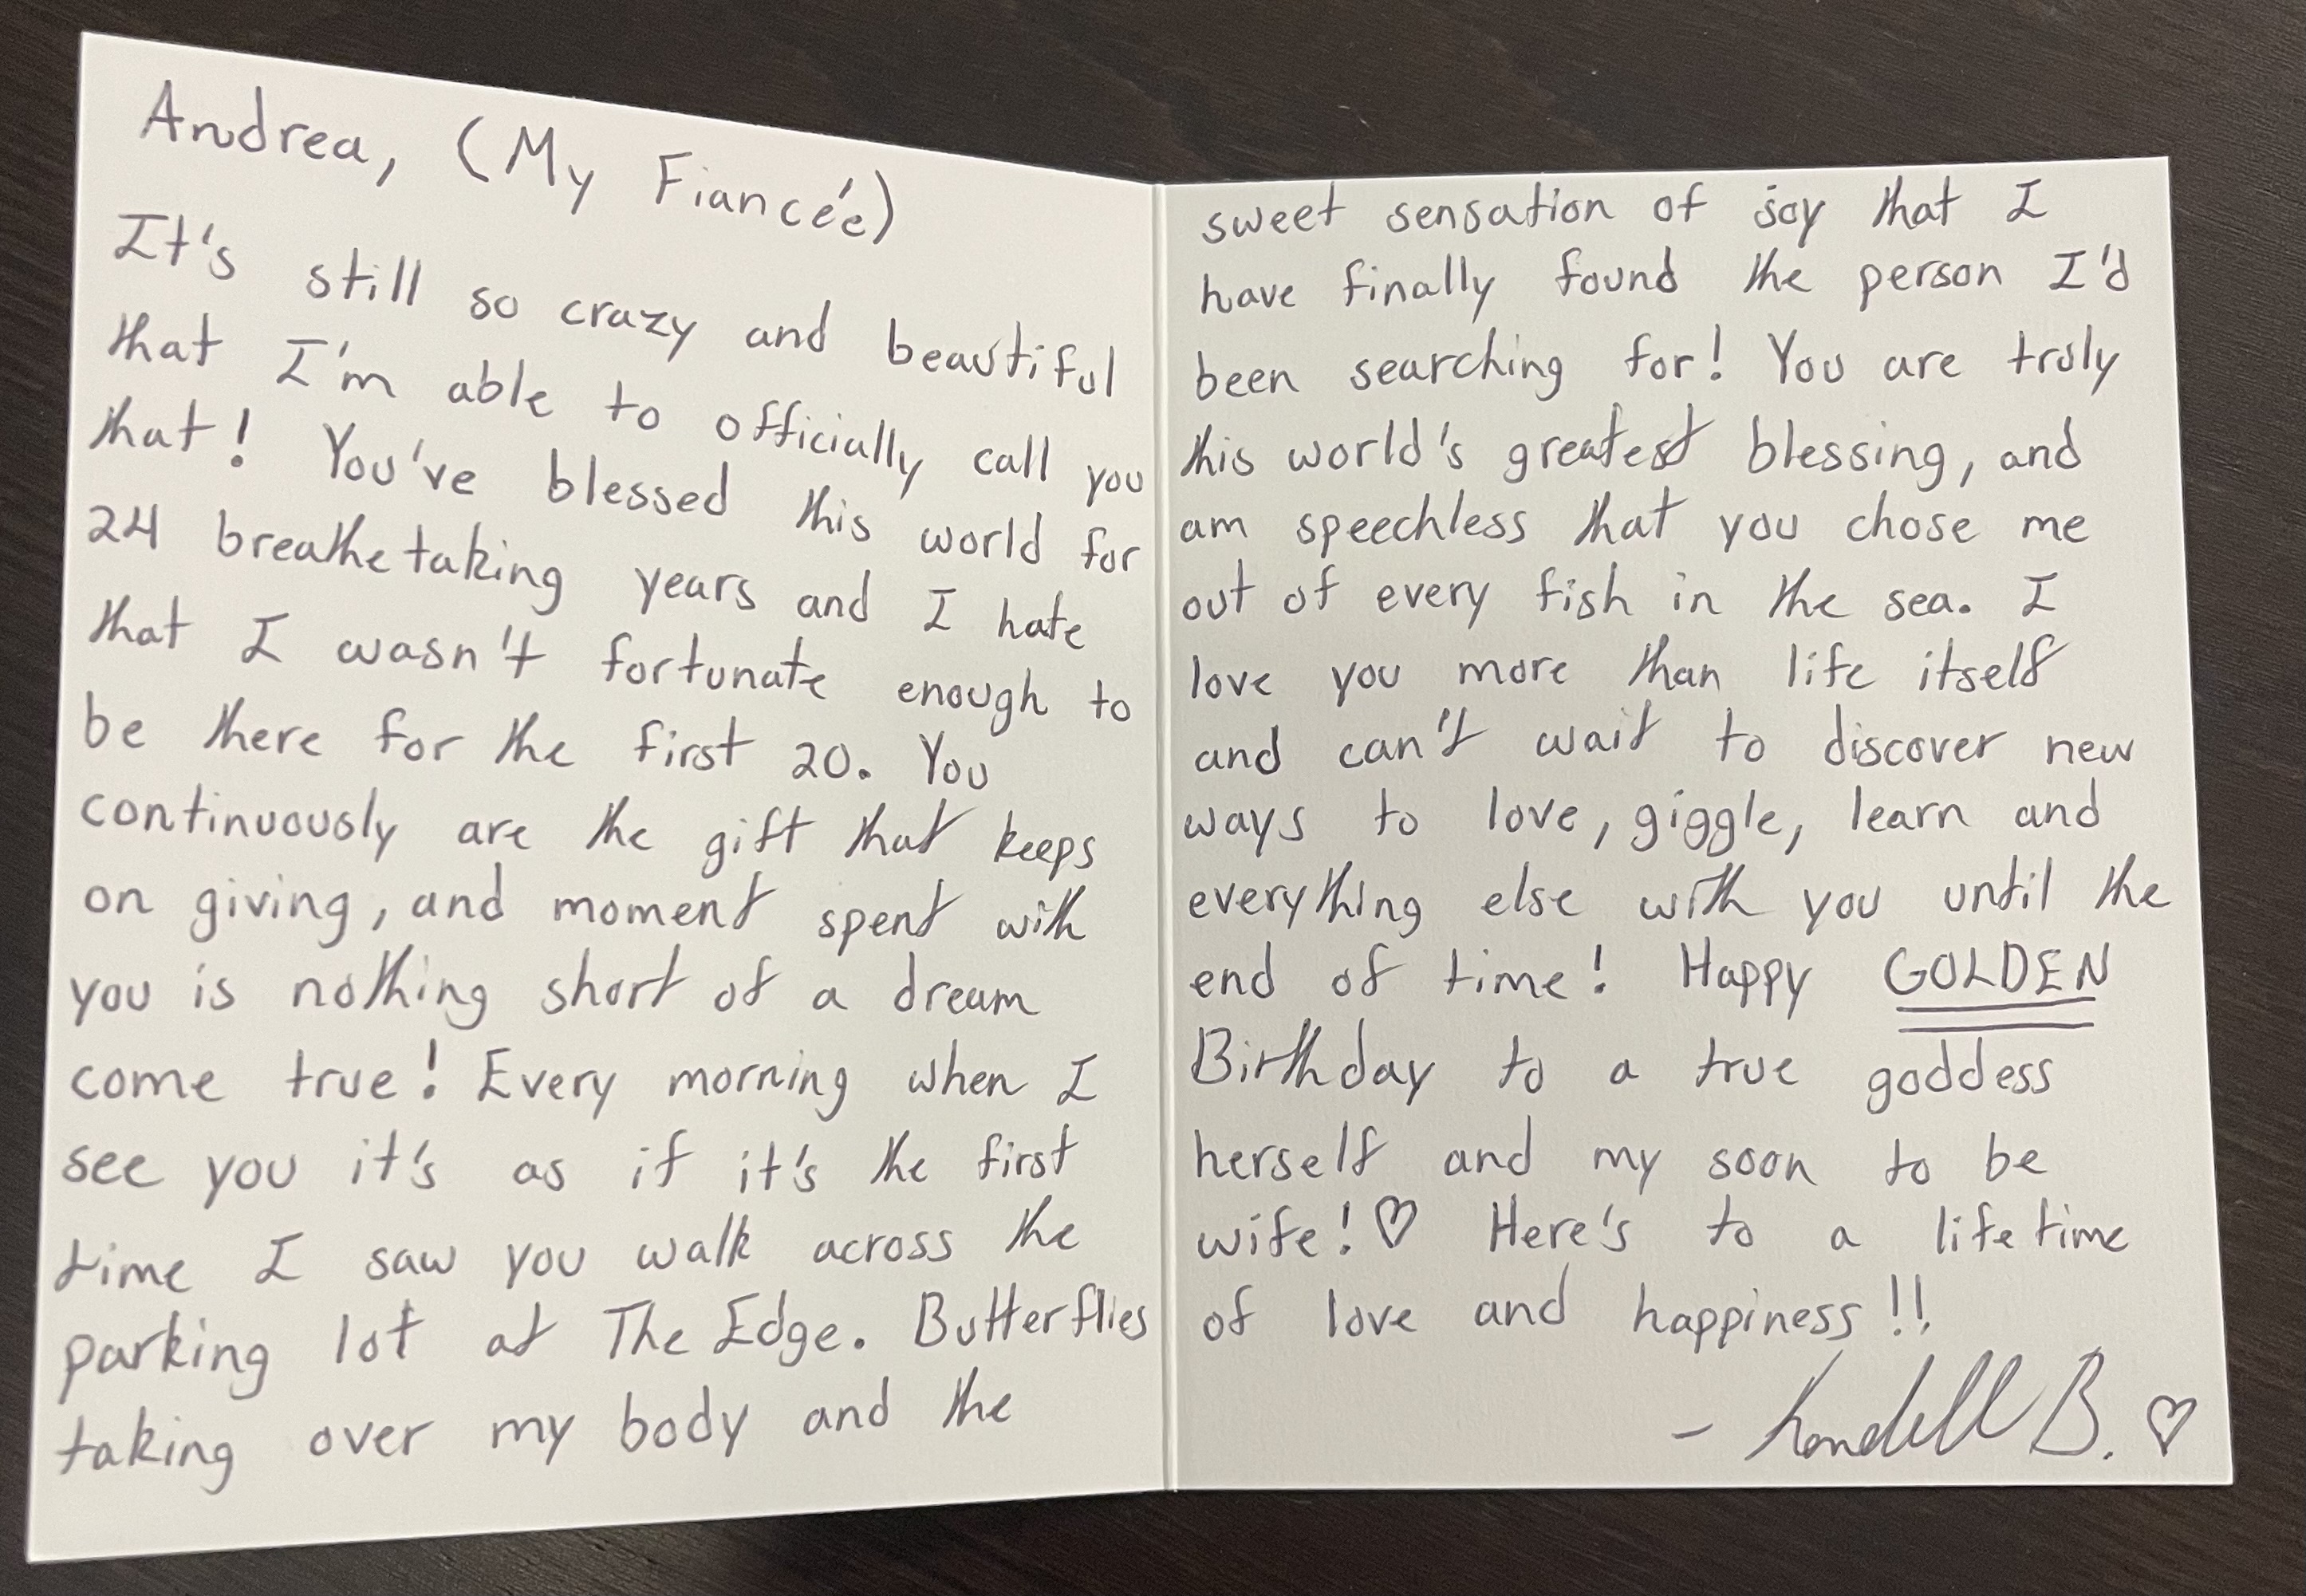 Andrea, (My Fiancée)
It's still so crazy and beautiful
that I'm able to officially call you
that! You've blessed this world for
24 breathetaking years and I hate
that I wasn't fortunate enough to
be there for the first 20. You
continuously are the gift that keeps
on giving, and moment spent with
you is nothing short of a dream
come true! Every morning when I
see you it's as if it's the first
time I saw you walk across the
parking lot at The Edge. Butterflies
taking over my body and the
sweet sensation of joy that I
have finally found the person I'd
been searching for! You are truly
this world's greatest blessing, and
am speechless that you chose me
out of every fish in the sea. I
love you more than life itself
and can't wait to discover new
ways to love, giggle, learn and
everything else with you until the
end of time! Happy GOLDEN
Birthday to a true goddess
herself and my soon to be
wife!♡ Here's to a lifetime
of love and happiness!!
- B. ♡